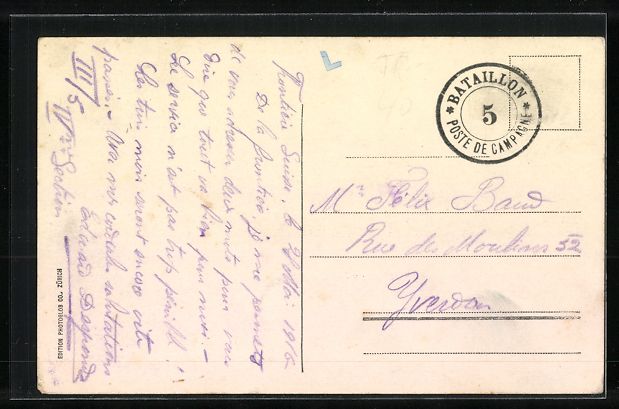 Frontière Suisse, le
1916
De la frontière je me permets
de vous adresser deux mots pour vous
dire que tout va bien pour moi. –
Le service n'est pas trop pénible!
Les trois mois seront encore vite
passés. – mes cordiales salutations.
Edouard
III/5
EDITION PHOTOGLOB CO., ZÜRICH
* BATAILLON *
5
POSTE DE CAMPAGNE
Mr Félix Baud
Rue des Moulins 52
Yverdon